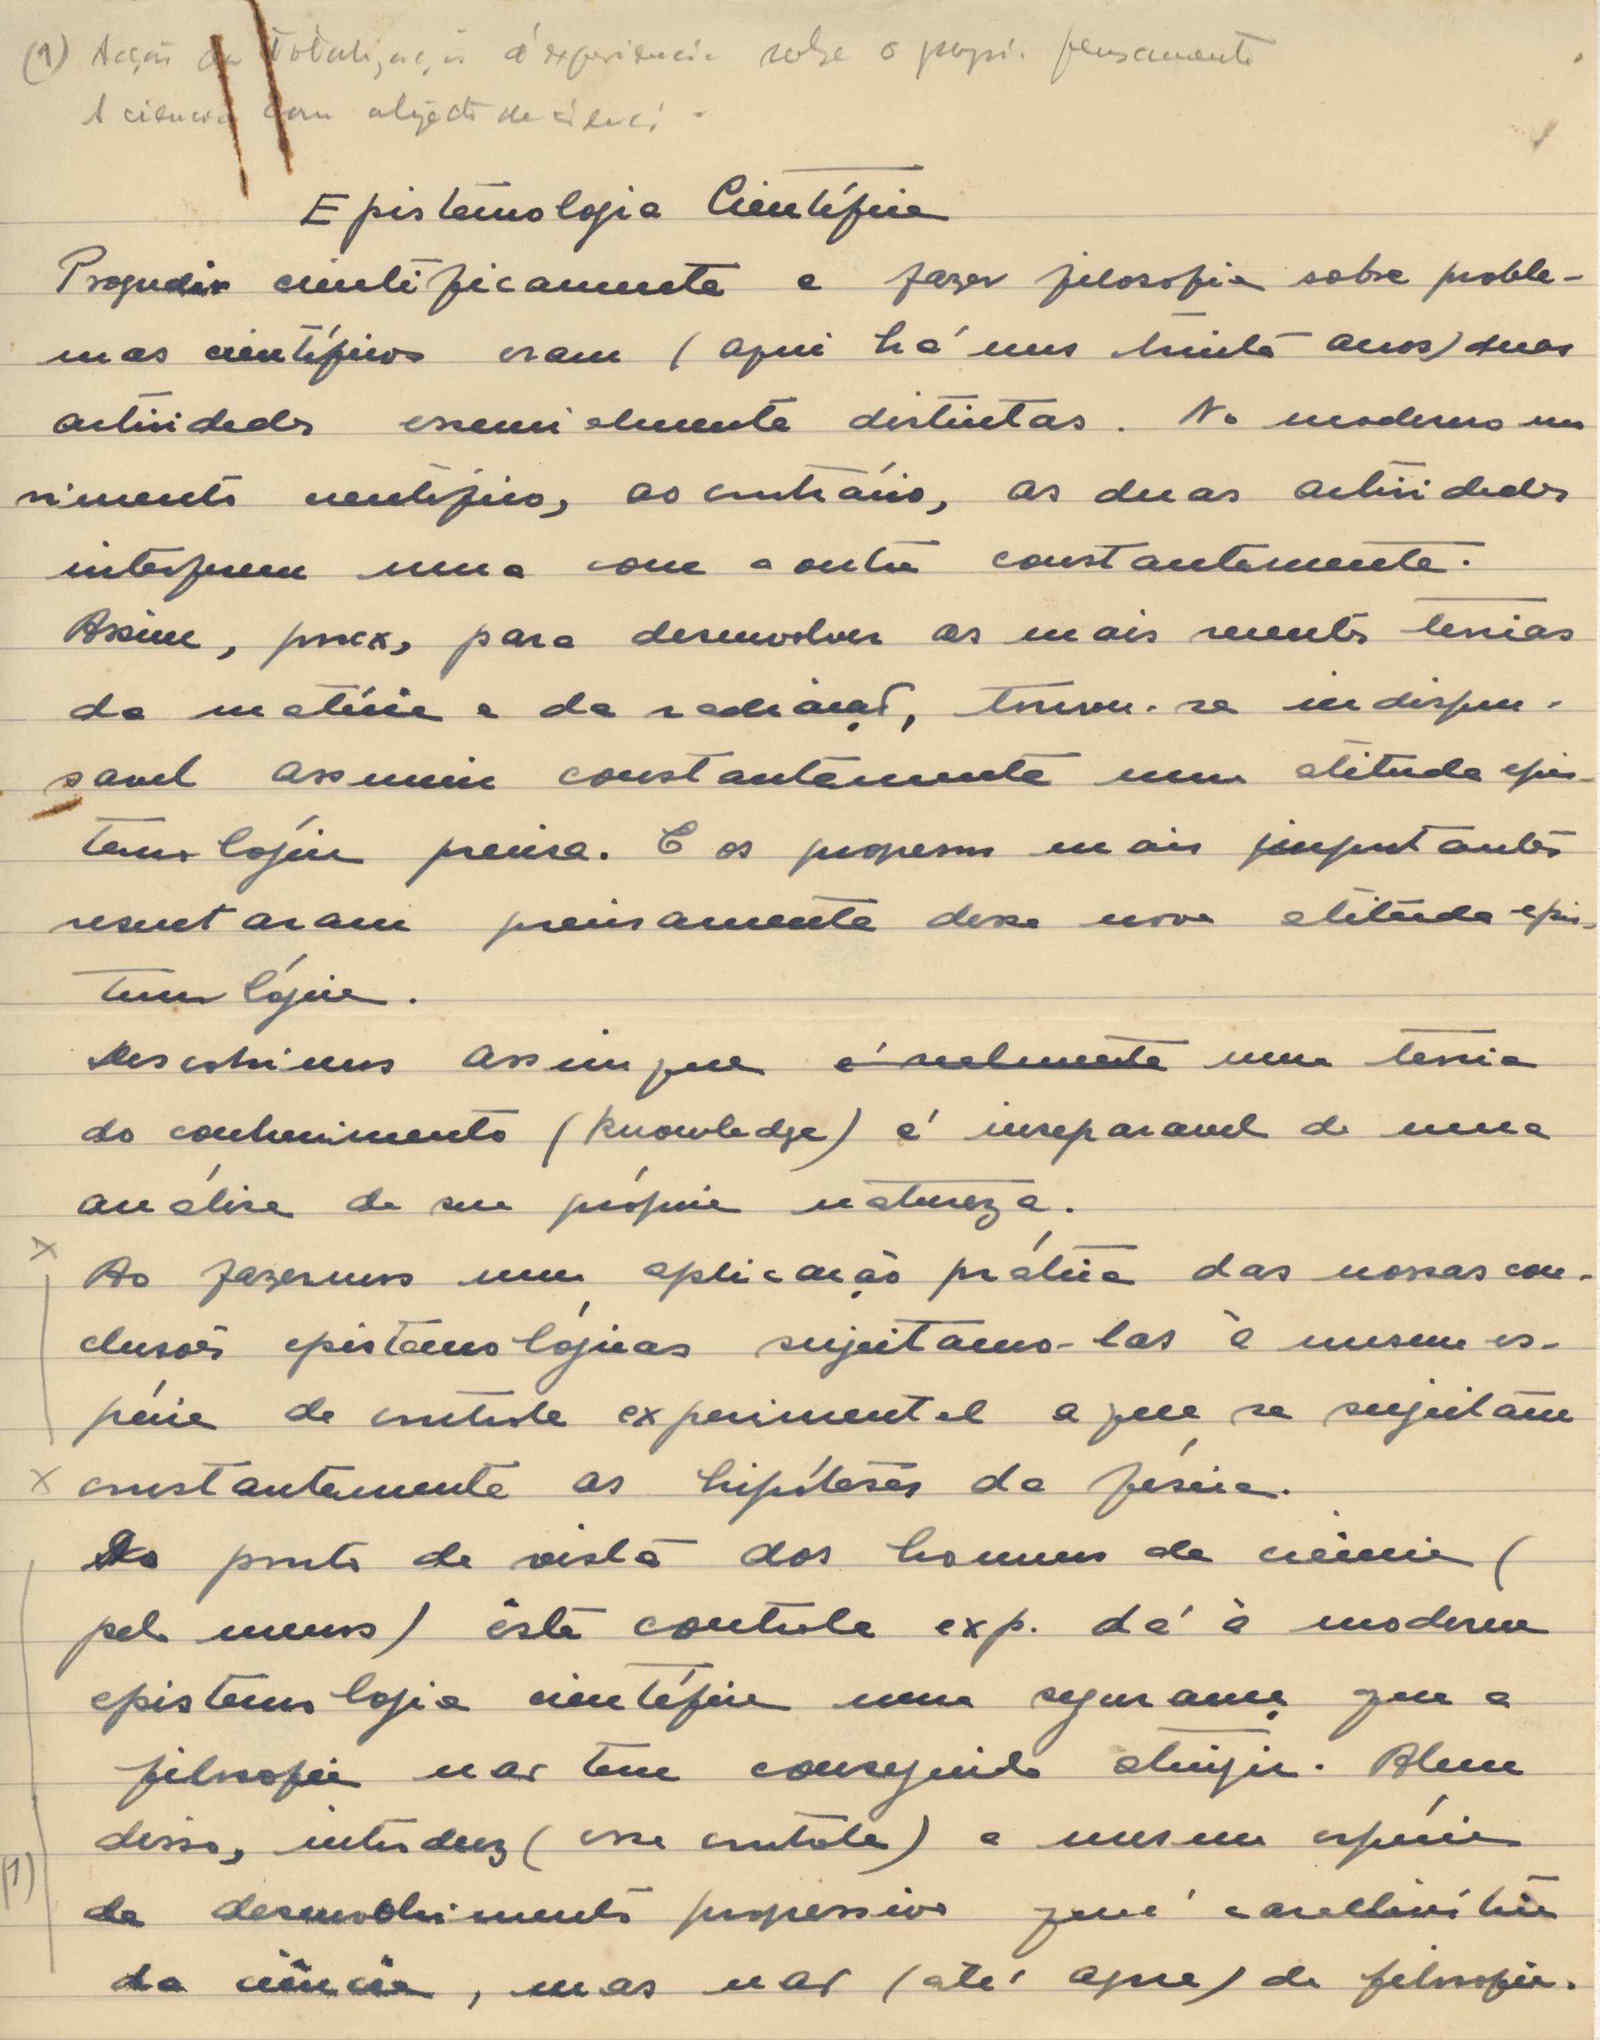 (1) Acção da totalização d'experiencia sobre o propri. pensamento
A ciencia com objecto de cienci.
Epistemologia Científica
Progredir cientificamente e fazer filosofia sobre proble-
mas científicos eram (aqui há uns trinta anos) duas
actividades essencialmente distintas. No moderno mo
vimento científico, ao contrário, as duas actividades
interferem uma com a outra constantemente.
Assim, por ex, para desenvolver as mais recentes teorias
da matéria e da radiação, tornou-se indispen-
savel assumir constantemente uma atitude epis-
temológica precisa. E os progressos mais importantes
resultaram precisamente dessa nova atitude epis-
temológica.
Descobrimos assim que é realmente uma teoria
do conhecimento (knowledge) é inseparavel de uma
análise da sua própria natureza.
x
Ao fazermos uma aplicação prática das nossas con-
clusões epistemológicas sujeitamo-las à mesma es-
pécie de controle experimental a que se sujeitam
x constantemente as hipóteses da física.
Do ponto de vista dos homens de ciência (
pelo menos) êste controle exp. dá à moderna
epistemologia científica uma segurança que a
filosofia não tem conseguido atingir. Alem
disso, introduz (esse controle) a mesma espécie
(1)
de desenvolvimento progressivo que é caracteristica
da ciência, mas não (até agora) da filosofia.